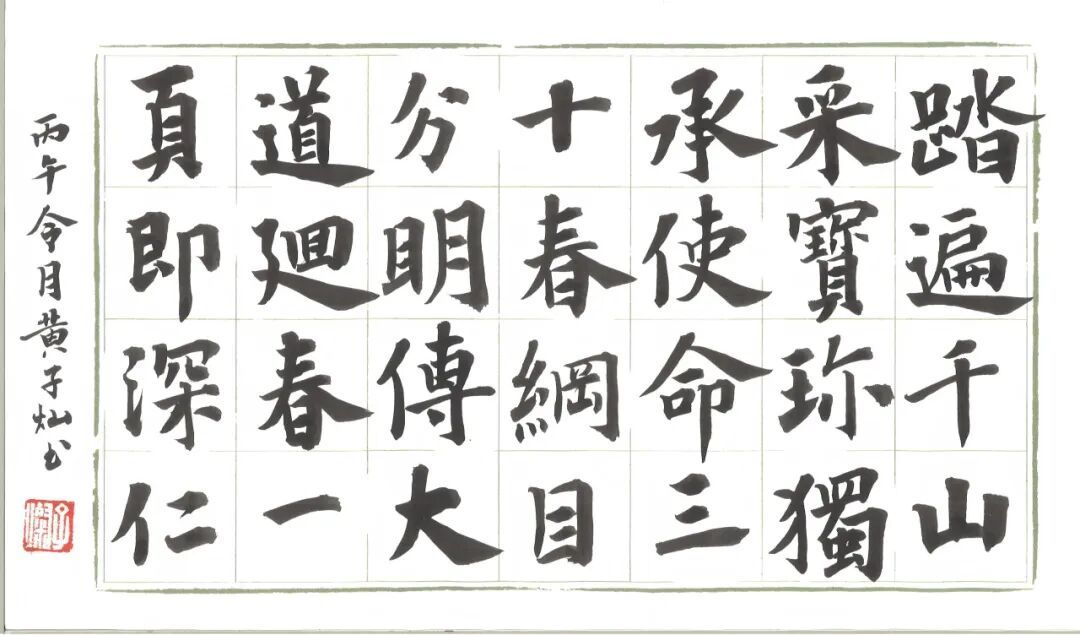 踏遍千山
采寶珎獨
承使命三
十春綱目
分明傳大
道廻春一
頁即深仁
丙午令月黄子灿书